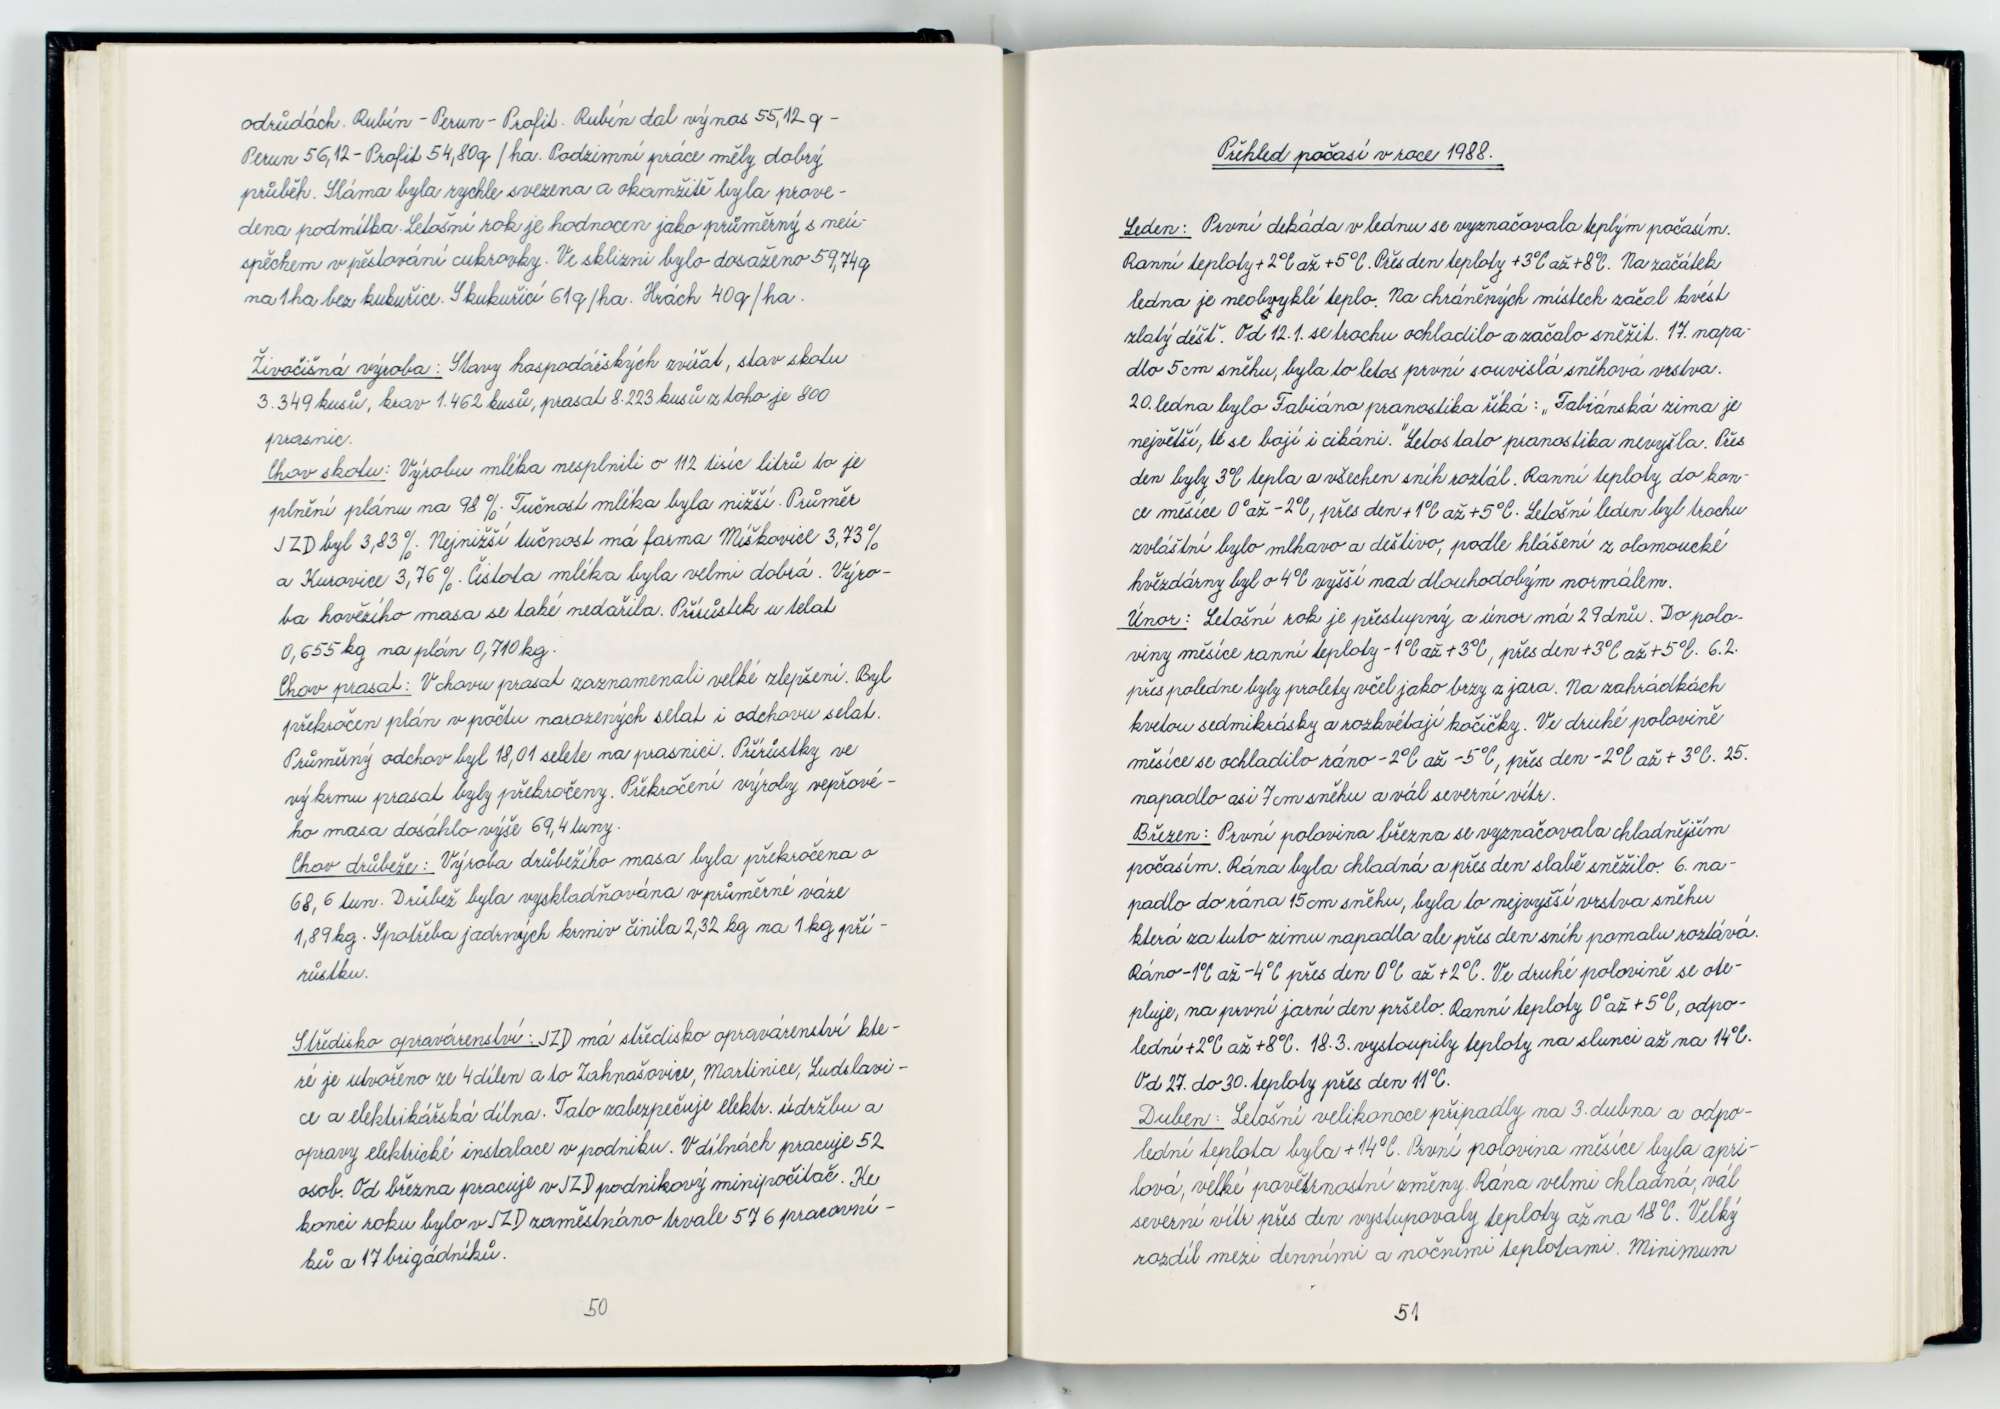 odrůdách. Rubín - Perun - Profit. Rubín dal výnos 55,12 q -
Perun 56,12 - Profit 54,80q /ha. Podzimní práce měly dobrý
průběh. Sláma byla rychle svezena a okamžitě byla prove-
dena podmítka. Letošní rok je hodnocen jako průměrný s neú-
spěchem v pěstování cukrovky. Ve sklizni bylo dosaženo 59,74q
na 1ha bez kukuřice. S kukuřicí 61q/ha. Hrách 40q/ha.
Živočišná výroba: Stavy hospodářských zvířat, stav skotu
3.349 kusů, krav 1.462 kusů, prasat 8.223 kusů z toho je 800
prasnic.
Chov skotu: Výrobu mléka nesplnili o 112 tisíc litrů to je
plnění plánu na 98%. Tučnost mléka byla nižší. Průměr
JZD byl 3,83%. Nejnižší tučnost má farma Míškovice 3,73%
a Kurovice 3,76%. Čistota mléka byla velmi dobrá. Výro-
ba hovězího masa se také nedařila. Přírůstek u telat
0,655 kg na plán 0,710 kg.
Chov prasat: V chovu prasat zaznamenali velké zlepšení. Byl
překročen plán v počtu narozených selat i odchovu selat.
Průměrný odchov byl 18,01 selete na prasnici. Přírůstky ve
výkrmu prasat byly překročeny. Překročení výroby vepřové-
ho masa dosáhlo výše 69,4 tuny.
Chov drůbeže: Výroba drůbežího masa byla překročena o
68,6 tun. Drůbež byla vyskladňována v průměrné váze
1,89 kg. Spotřeba jadrných krmiv činila 2,32 kg na 1 kg pří-
růstku.
Středisko opravárenství: JZD má středisko opravárenství kte-
ré je utvořeno ze 4 dílen a to Zahnašovice, Martinice, Ludslavi-
ce a elektrikářská dílna. Tato zabezpečuje elektr. údržbu a
opravy elektrické instalace v podniku. V dílnách pracuje 52
osob. Od března pracuje v JZD podnikový minipočítač. Ke
konci roku bylo v JZD zaměstnáno trvale 576 pracovní-
ků a 17 brigádníků.
50
Přehled počasí v roce 1988.
Leden: První dekáda v lednu se vyznačovala teplým počasím.
Ranní teploty +2°C až +5°C. Přes den teploty +3°C až +8°C. Na začátek
ledna je neobvyklé teplo. Na chráněných místech začal kvést
zlatý déšť. Od 12.1. se trochu ochladilo a začalo sněžit. 17. napa-
dlo 5cm sněhu, byla to letos první souvislá sněhová vrstva.
20. ledna bylo Fabiána pranostika říká: „Fabiánská zima je
největší, té se bojí i cikáni." Letos tato pranostika nevyšla. Přes
den byly 3°C tepla a všechen sníh roztál. Ranní teploty do kon-
ce měsíce 0° až -2°C, přes den +1°C až +5°C. Letošní leden byl trochu
zvláštní bylo mlhavo a deštivo, podle hlášení z olomoucké
hvězdárny byl o 4°C vyšší nad dlouhodobým normálem.
Únor: Letošní rok je přestupný a únor má 29 dnů. Do polo-
viny měsíce ranní teploty -1°C až +3°C, přes den +3°C až +5°C. 6.2.
přes poledne byly prolety včel jako brzy z jara. Na zahrádkách
kvetou sedmikrásky a rozkvétají kočičky. Ve druhé polovině
měsíce se ochladilo ráno -2°C až -5°C, přes den -2°C až +3°C. 25.
napadlo asi 7cm sněhu a vál severní vítr.
Březen: První polovina března se vyznačovala chladnějším
počasím. Rána byla chladná a přes den slabě sněžilo. 6. na-
padlo do rána 15cm sněhu, byla to nejvyšší vrstva sněhu
která za tuto zimu napadla ale přes den sníh pomalu roztává.
Ráno -1°C až -4°C přes den 0°C až +2°C. Ve druhé polovině se ote-
pluje, na první jarní den pršelo. Ranní teploty 0° až +5°C, odpo-
lední +2°C až +8°C. 18.3. vystoupily teploty na slunci až na 14°C.
Od 27. do 30. teploty přes den 11°C.
Duben: Letošní velikonoce připadly na 3. dubna a odpo-
lední teplota byla +14°C. První polovina měsíce byla apri-
lová, velké povětrnostní změny. Rána velmi chladná, vál
severní vítr přes den vystupovaly teploty až na 18°C. Velký
rozdíl mezi denními a nočními teplotami. Minimum
51